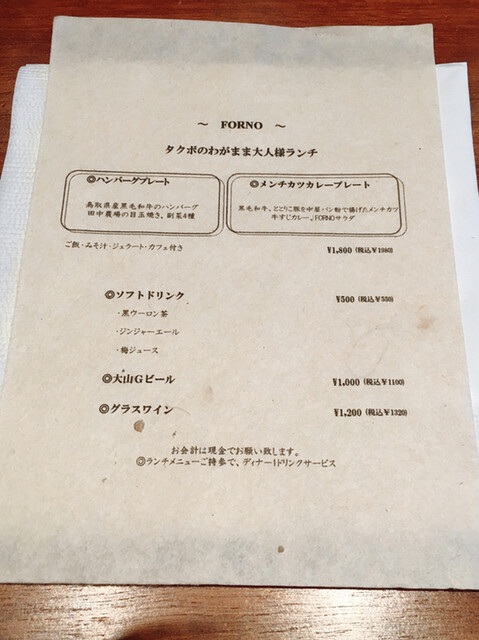 ～ FORNO ～
タクボのわがまま大人様ランチ
◎ハンバーグプレート
鳥取県産黒毛和牛のハンバーグ
田中農場の目玉焼き、副菜4種
◎メンチカツカレープレート
黒毛和牛、ととりこ豚を中挽パン粉で揚げたメンチカツ
牛すじカレー。FORNOサラダ
ご飯・みそ汁・ジェラート・カフェ付き
¥1,800 (税込¥1980)
◎ソフトドリンク ¥500 (税込¥550)
・黒ウーロン茶
・ジンジャーエール
・梅ジュース
◎大山Gビール ¥1,000 (税込¥1100)
◎グラスワイン ¥1,200 (税込¥1320)
お会計は現金でお願い致します。
◎ランチメニューご持参で、ディナー1ドリンクサービス